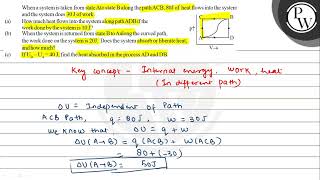 When a system is taken from state A to state B along the path ACB, 80 J of heat flows into the system and the system does 30 J of work.
(a) How much heat flows into the system along path ADB if the work done by the system is 10 J?
(b) When the system is returned from state B to A along the curved path, the work done on the system is 20 J. Does the system absorb or liberate heat, and how much?
(c) If U_D - U_A = 40 J, find the heat absorbed in the process AD and DB
PW
Key concept - Internal energy, work, heat
(In different path)
ΔU = Independent of Path
ACB Path, q = 80J, w = 30J
we know that: ΔU = q + w
ΔU(A→B) = q(ACB) + w(ACB)
= 80 + (-30)
ΔU(A→B) = 50J